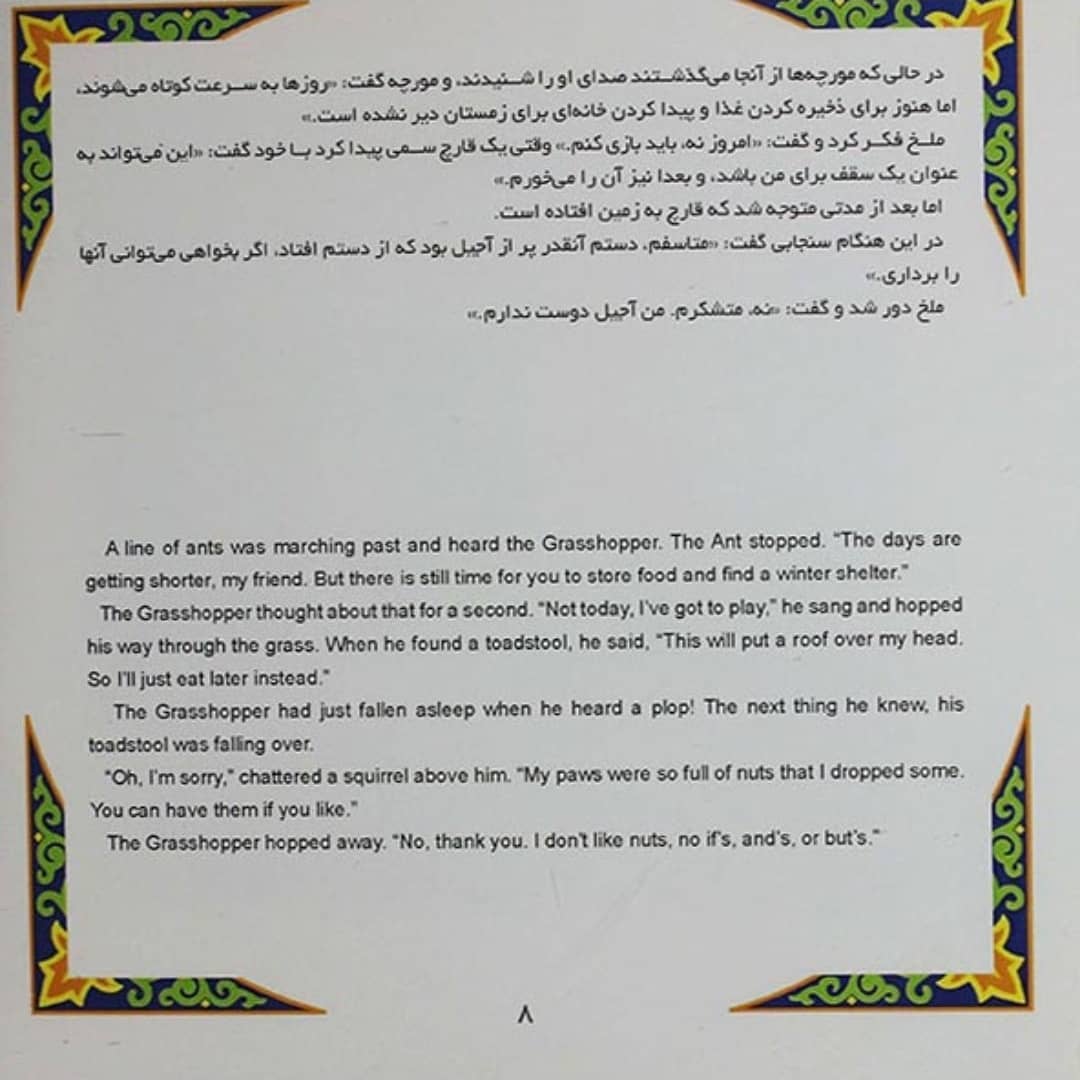 در حالی که مورچه‌ها از آنجا می‌گذشتند صدای او را شنیدند، و مورچه گفت: «روزها به سرعت کوتاه می‌شوند،
اما هنوز برای ذخیره کردن غذا و پیدا کردن خانه‌ای برای زمستان دیر نشده است.»
ملخ فکر کرد و گفت: «امروز نه، باید بازی کنم.» وقتی یک قارچ سمی پیدا کرد با خود گفت: «این می‌تواند به
عنوان یک سقف برای من باشد، و بعدا نیز آن را می‌خورم.»
اما بعد از مدتی متوجه شد که قارچ به زمین افتاده است.
در این هنگام سنجابی گفت: «متاسفم، دستم آنقدر پر از آجیل بود که از دستم افتاد، اگر بخواهی می‌توانی آنها
را برداری.»
ملخ دور شد و گفت: «نه، متشکرم. من آجیل دوست ندارم.»
A line of ants was marching past and heard the Grasshopper. The Ant stopped. “The days are
getting shorter, my friend. But there is still time for you to store food and find a winter shelter.”
The Grasshopper thought about that for a second. “Not today, I've got to play,” he sang and hopped
his way through the grass. When he found a toadstool, he said, “This will put a roof over my head.
So I'll just eat later instead.”
The Grasshopper had just fallen asleep when he heard a plop! The next thing he knew, his
toadstool was falling over.
“Oh, I'm sorry,” chattered a squirrel above him. “My paws were so full of nuts that I dropped some.
You can have them if you like.”
The Grasshopper hopped away. “No, thank you. I don't like nuts, no if's, and's, or but's.”
۸